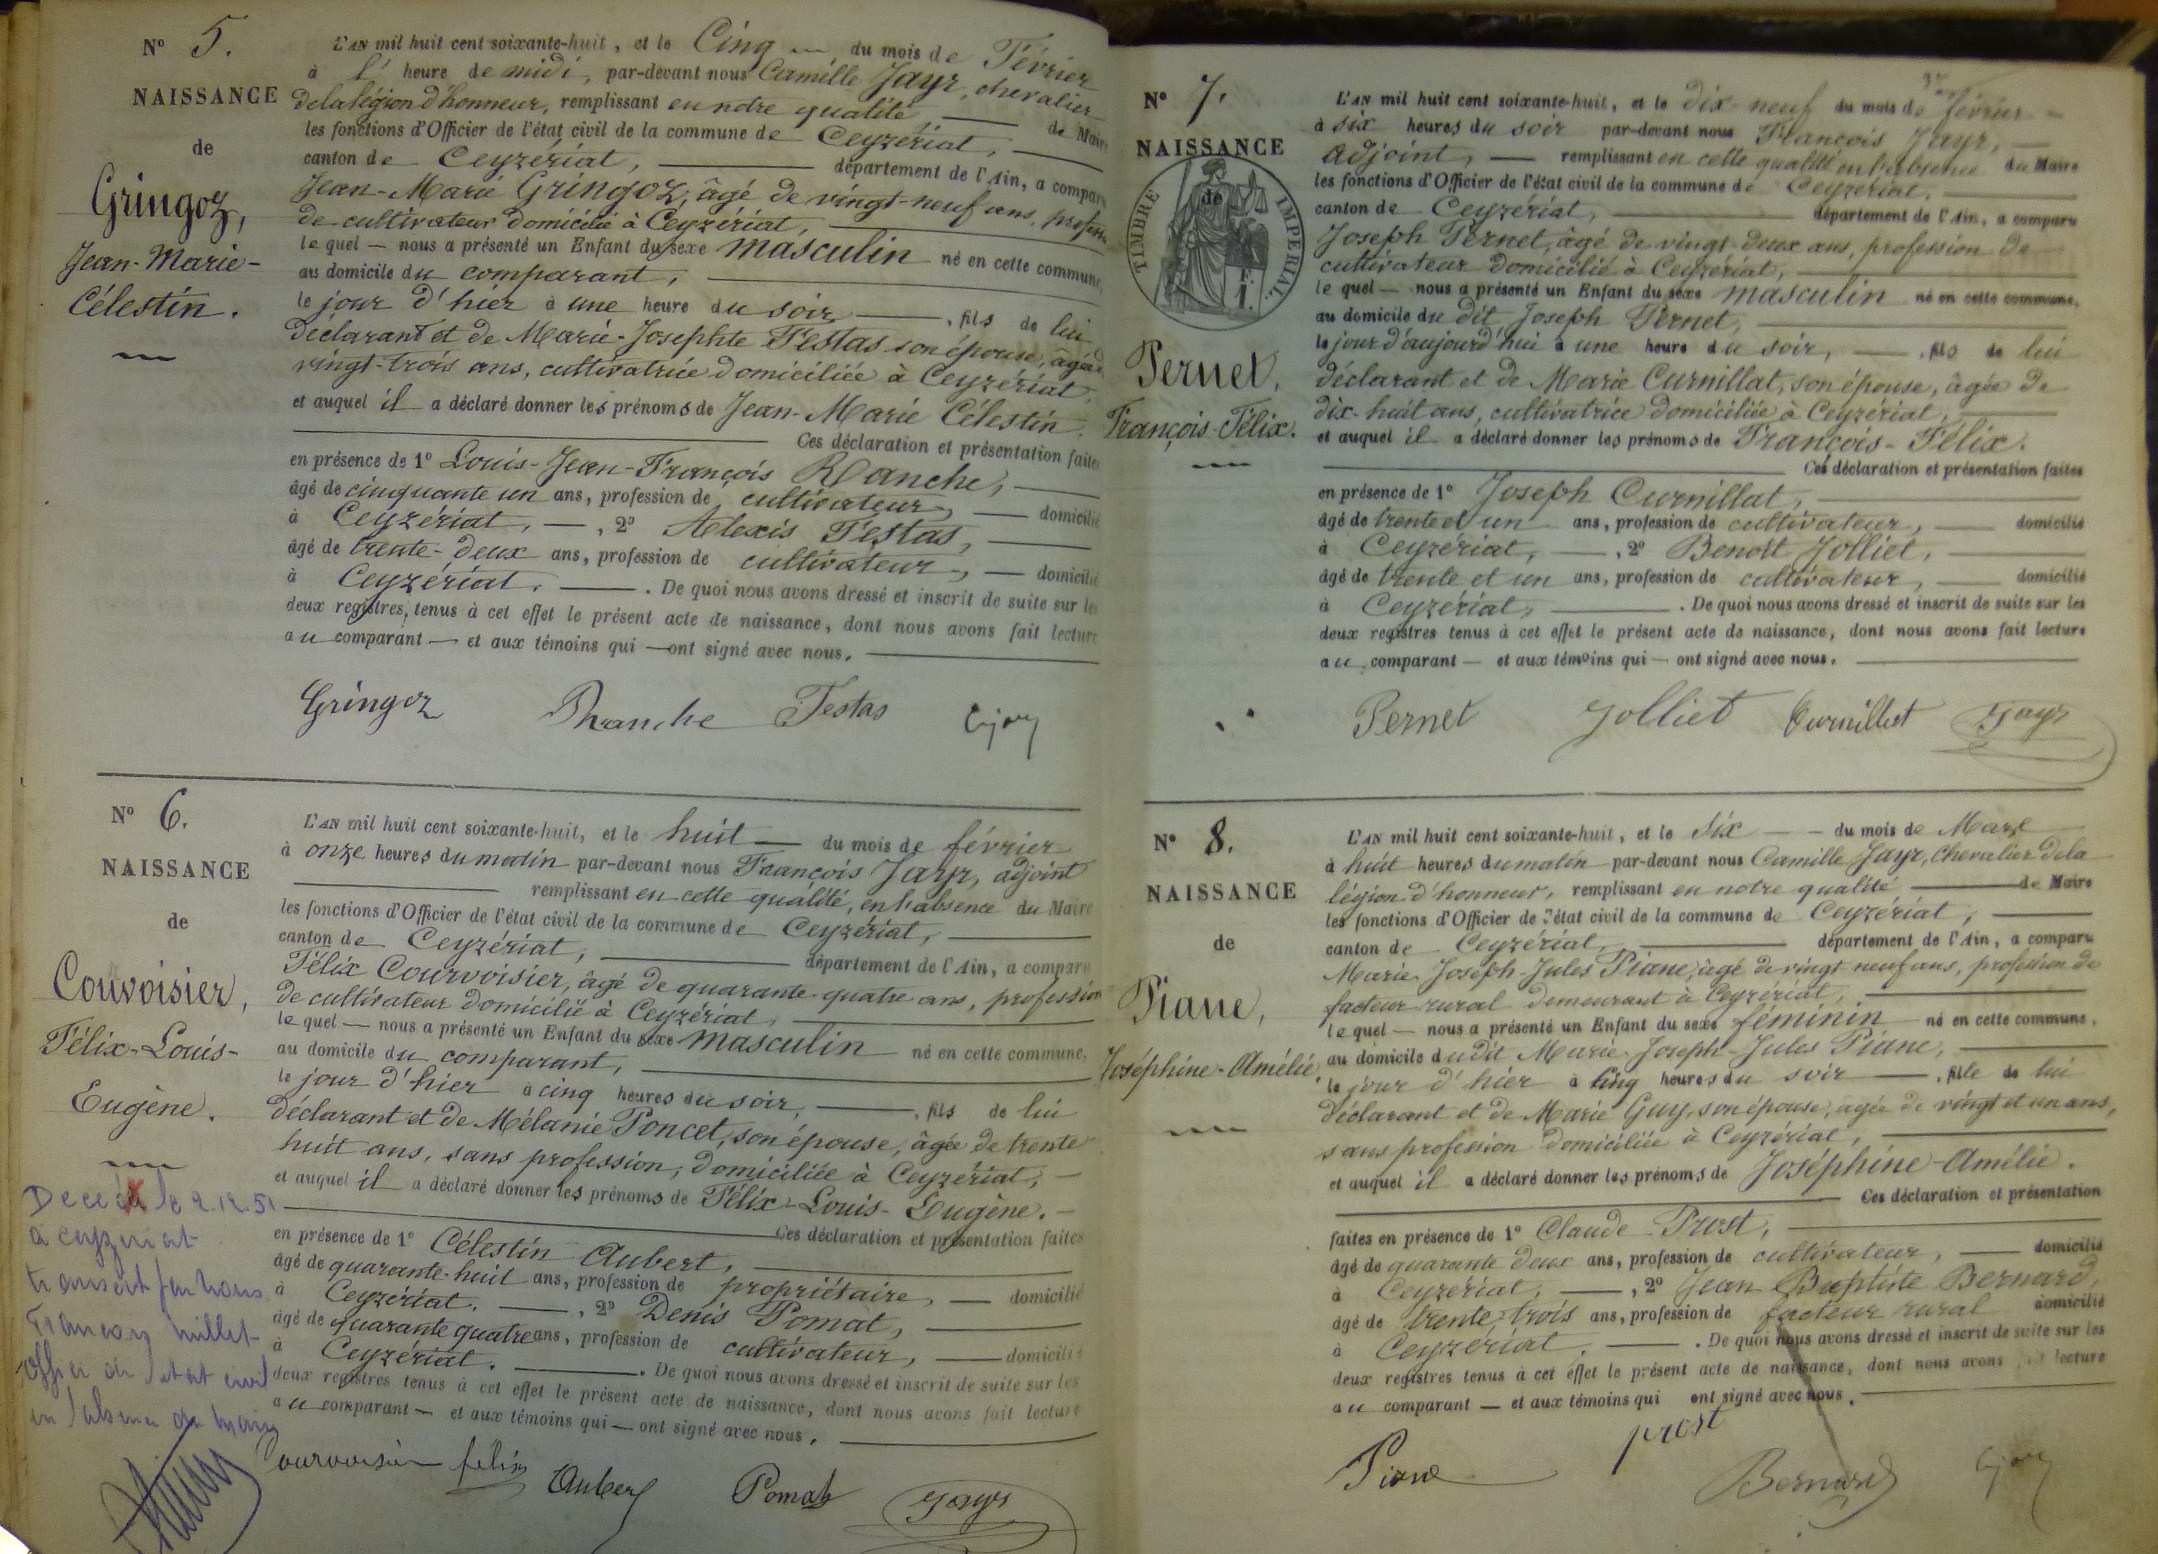 N° 5.
NAISSANCE
de
Gringoz,
Jean-Marie-
Célestin.
L'AN mil huit cent soixante-huit, et le Cinq du mois de Février
à l'heure de midi, par-devant nous Camille Jayr, chevalier
de la légion d'honneur, remplissant en notre qualité de Maire
les fonctions d'Officier de l'état civil de la commune de Ceyzériat,
canton de Ceyzériat, département de l'Ain, a comparu
Jean-Marie Gringoz, âgé de vingt-neuf ans, profession
de cultivateur domicilié à Ceyzériat,
le quel nous a présenté un Enfant du sexe masculin né en cette commune,
au domicile du comparant,
le jour d'hier à une heure du soir, fils de lui
déclarant et de Marie-Josephte Festas son épouse, âgée de
vingt-trois ans, cultivatrice domiciliée à Ceyzériat,
et auquel il a déclaré donner les prénoms de Jean-Marie Célestin.
Ces déclaration et présentation faites
en présence de 1° Louis-Jean-François Ranche,
âgé de cinquante un ans, profession de cultivateur, domicilié
à Ceyzériat, 2° Alexis Festas,
âgé de trente-deux ans, profession de cultivateur, domicilié
à Ceyzériat. De quoi nous avons dressé et inscrit de suite sur les
deux registres, tenus à cet effet le présent acte de naissance, dont nous avons fait lecture
au comparant et aux témoins qui ont signé avec nous.
Gringoz Rhanche Festas CJayr
N° 6.
NAISSANCE
de
Couvoisier,
Félix-Louis-
Eugène.
Decédé le 2.12.51
a ceyzeriat
transcrit par nous
Francois Millet
officier de l'état civil
en l'absence du maire
L'AN mil huit cent soixante-huit, et le huit du mois de février
à onze heures du matin par-devant nous François Jayr, adjoint
remplissant en cette qualité, en l'absence du Maire
les fonctions d'Officier de l'état civil de la commune de Ceyzériat,
canton de Ceyzériat, département de l'Ain, a comparu
Félix Courvoisier, âgé de quarante-quatre ans, profession
de cultivateur domicilié à Ceyzériat,
le quel nous a présenté un Enfant du sexe masculin né en cette commune,
au domicile du comparant,
le jour d'hier à cinq heures du soir, fils de lui
déclarant et de Mélanie Poncet, son épouse, âgée de trente
huit ans, sans profession, domiciliée à Ceyzériat,
et auquel il a déclaré donner les prénoms de Félix-Louis-Eugène.
Ces déclaration et présentation faites
en présence de 1° Célestin Aubert,
âgé de quarante-huit ans, profession de propriétaire, domicilié
à Ceyzériat. 2° Denis Pomat,
âgé de quarante quatre ans, profession de cultivateur, domicilié
à Ceyzériat. De quoi nous avons dressé et inscrit de suite sur les
deux registres tenus à cet effet le présent acte de naissance, dont nous avons fait lecture
au comparant et aux témoins qui ont signé avec nous.
Courvoisier félix Aubert Pomat Jayr
N° 7.
NAISSANCE
de
TIMBRE IMPERIAL
Pernet,
François-Félix.
L'AN mil huit cent soixante-huit, et le dix-neuf du mois de février
à six heures du soir par-devant nous François Jayr,
adjoint, remplissant en cette qualité en l'absence du Maire
les fonctions d'Officier de l'état civil de la commune de Ceyzériat,
canton de Ceyzériat, département de l'Ain, a comparu
Joseph Pernet, âgé de vingt-deux ans, profession de
cultivateur domicilié à Ceyzériat,
le quel nous a présenté un Enfant du sexe masculin né en cette commune,
au domicile du dit Joseph Pernet,
le jour d'aujourd'hui à une heure du soir, fils de lui
déclarant et de Marie Curnillat, son épouse, âgée de
dix-huit ans, cultivatrice domiciliée à Ceyzériat,
et auquel il a déclaré donner les prénoms de François-Félix.
Ces déclaration et présentation faites
en présence de 1° Joseph Curnillat,
âgé de trente et un ans, profession de cultivateur, domicilié
à Ceyzériat, 2° Benoît Jolliet,
âgé de trente et un ans, profession de cultivateur, domicilié
à Ceyzériat, De quoi nous avons dressé et inscrit de suite sur les
deux registres tenus à cet effet le présent acte de naissance, dont nous avons fait lecture
au comparant et aux témoins qui ont signé avec nous.
Pernet Jolliet Curnillat Jayr
N° 8.
NAISSANCE
de
Piane,
Joséphine-Amélie.
L'AN mil huit cent soixante-huit, et le Six du mois de Mars
à huit heures du matin par-devant nous Camille Jayr, Chevalier de la
légion d'honneur, remplissant en notre qualité de Maire
les fonctions d'Officier de l'état civil de la commune de Ceyzériat,
canton de Ceyzériat, département de l'Ain, a comparu
Marie-Joseph-Jules Piane, âgé de vingt neuf ans, profession de
facteur rural demeurant à Ceyzériat,
le quel nous a présenté un Enfant du sexe féminin né en cette commune,
au domicile du dit Marie-Joseph-Jules Piane,
le jour d'hier à Cinq heures du soir, fille de lui
déclarant et de Marie Guy, son épouse, âgée de vingt et un ans,
sans profession domiciliée à Ceyzériat,
et auquel il a déclaré donner les prénoms de Joséphine-Amélie.
Ces déclaration et présentation
faites en présence de 1° Claude Prost,
âgé de quarante deux ans, profession de cultivateur, domicilié
à Ceyzériat, 2° Jean Baptiste Bernard,
âgé de trente trois ans, profession de facteur rural domicilié
à Ceyzériat. De quoi nous avons dressé et inscrit de suite sur les
deux registres tenus à cet effet le présent acte de naissance, dont nous avons fait lecture
au comparant et aux témoins qui ont signé avec nous.
Piane prost Bernard CJayr